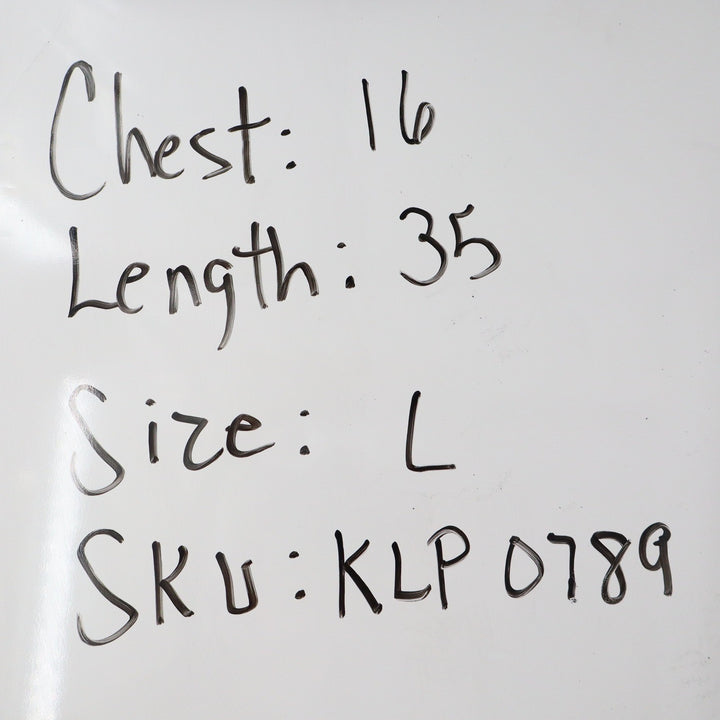 Chest: 16
Length: 35
Size: L
SKU: KLP 0789